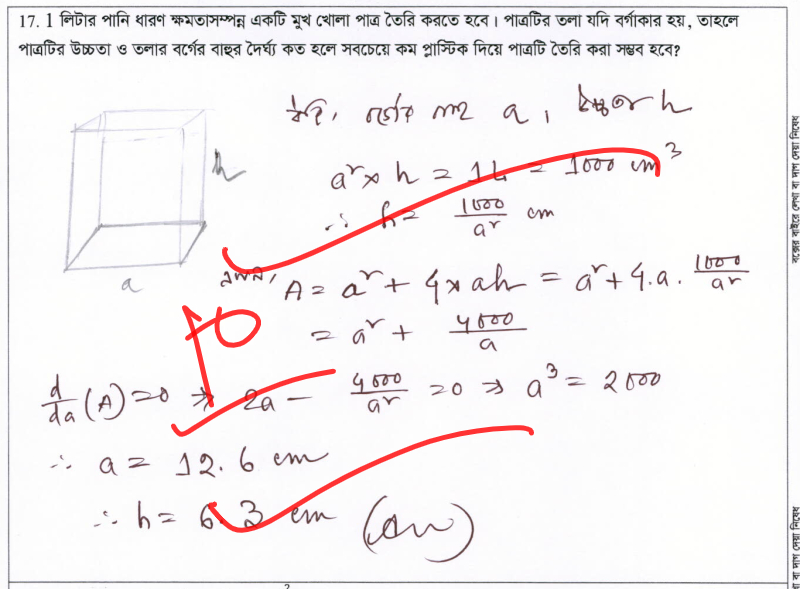 17. 1 লিটার পানি ধারণ ক্ষমতাসম্পন্ন একটি মুখ খোলা পাত্র তৈরি করতে হবে। পাত্রটির তলা যদি বর্গাকার হয়, তাহলে
পাত্রটির উচ্চতা ও তলার বর্গের বাহুর দৈর্ঘ্য কত হলে সবচেয়ে কম প্লাস্টিক দিয়ে পাত্রটি তৈরি করা সম্ভব হবে?
ধরি, বর্গের বাহু a, উচ্চতা h
a² × h = 1L = 1000 cm³
∴ h = 1000/a² cm
h
a
এখন, A = a² + 4×ah = a² + 4.a. 1000/a²
= a² + 4000/a
d/da (A) = 0 ⇒ 2a − 4000/a² = 0 ⇒ a³ = 2000
∴ a = 12.6 cm
∴ h = 6.3 cm (Ans)
বক্সের বাইরে লেখা বা দাগ দেয়া নিষেধ
বা বা দাগ দেয়া নিষেধ